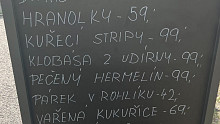 HRANOLKY-59,-
KUŘECÍ STRIPY-99,-
KLOBÁSA Z UDÍRNY-99,-
PEČENÝ HERMELÍN-99,-
PÁREK V ROHLÍKU-42,-
VAŘENÁ KUKUŘICE-69,-